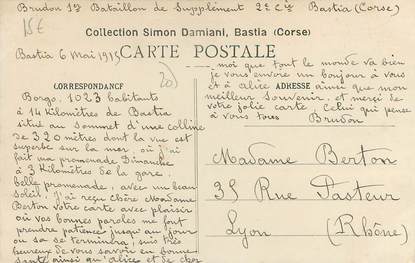 Brudon 1er Bataillon de Supplément 2e Cie Bastia (Corse)
15€
Collection Simon Damiani, Bastia (Corse)
Bastia 6 Mai 1915 CARTE POSTALE
CORRESPONDANCE
Borgo. 1023 habitants
à 14 Kilomètres de Bastia
situé au sommet d'une colline
de 320 mètres dont la vue est
superbe sur la mer où j'ai
fait ma promenade Dimanche
à 3 Kilomètres de la gare.
belle promenade, avec un beau
soleil. J'ai reçu Chère Madame
Berton votre carte avec plaisir
où vos bonnes paroles me font
prendre patience jusqu'au jour
où ça se terminera, suis très
heureux de vous savoir en bonne
santé ainsi qu'Alice et de
moi que tout le monde va bien
je vous envoie un bonjour à vous
et à alice ADRESSE ainsi que mon
meilleur souvenir. et merci de
votre jolie carte. Celui qui pense
à vous tous Brudon
Madame Berton
35 Rue Pasteur
Lyon (Rhône)